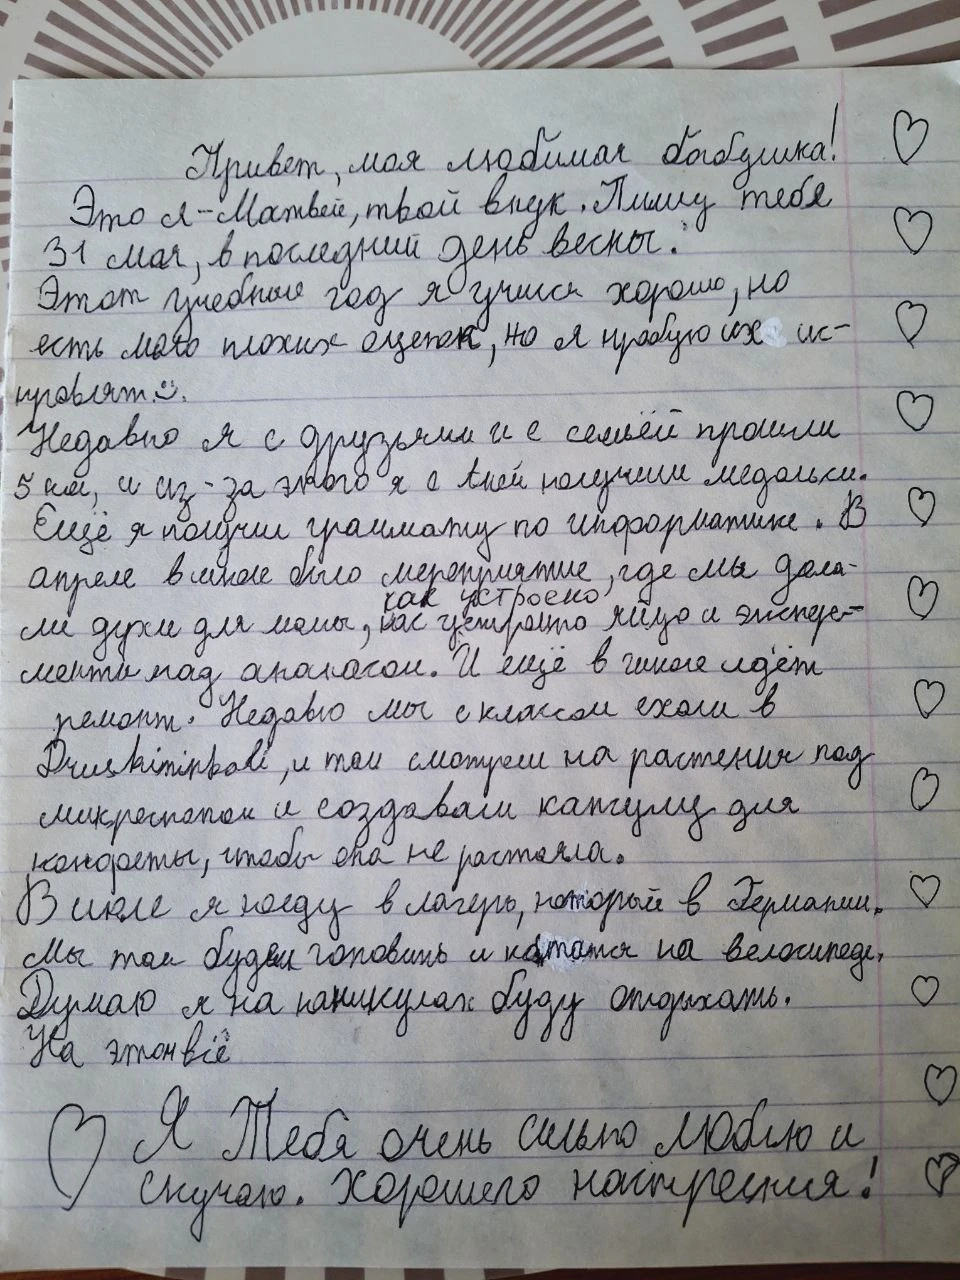 Привет, моя любимая бабушка!
Это я-Матвей, твой внук. Пишу тебя
31 мая, в последний день весны.
Этот учебные год я учися хорошо, но
есть мало плохих оценок, но я пробую их ис-
провлят.
Недавно я с друзьями и с семьёй прошли
5 км, и из-за этого я с ней получили медальки.
Ещё я получил граммату по информатике. В
апреле в школе было мероприятие, где мы дела-
как устроено
ли духи для мамы, яйцо и экспере-
менты над ананасом. И ещё в школе идёт
ремонт. Недавно мы с классом ехали в
Druskininkai, и там смотрели на растения под
микроскопом и создавали капсулу для
конфеты, чтобы она не растаяла.
В июле я поеду в лагерь, который в Германии.
Мы там будем готовить и кататся на велосипеде.
Думаю я на каникулах буду отдыхать.
На этом всё
Я Тебя очень сильно люблю и
скучаю. Хорошего настрения!